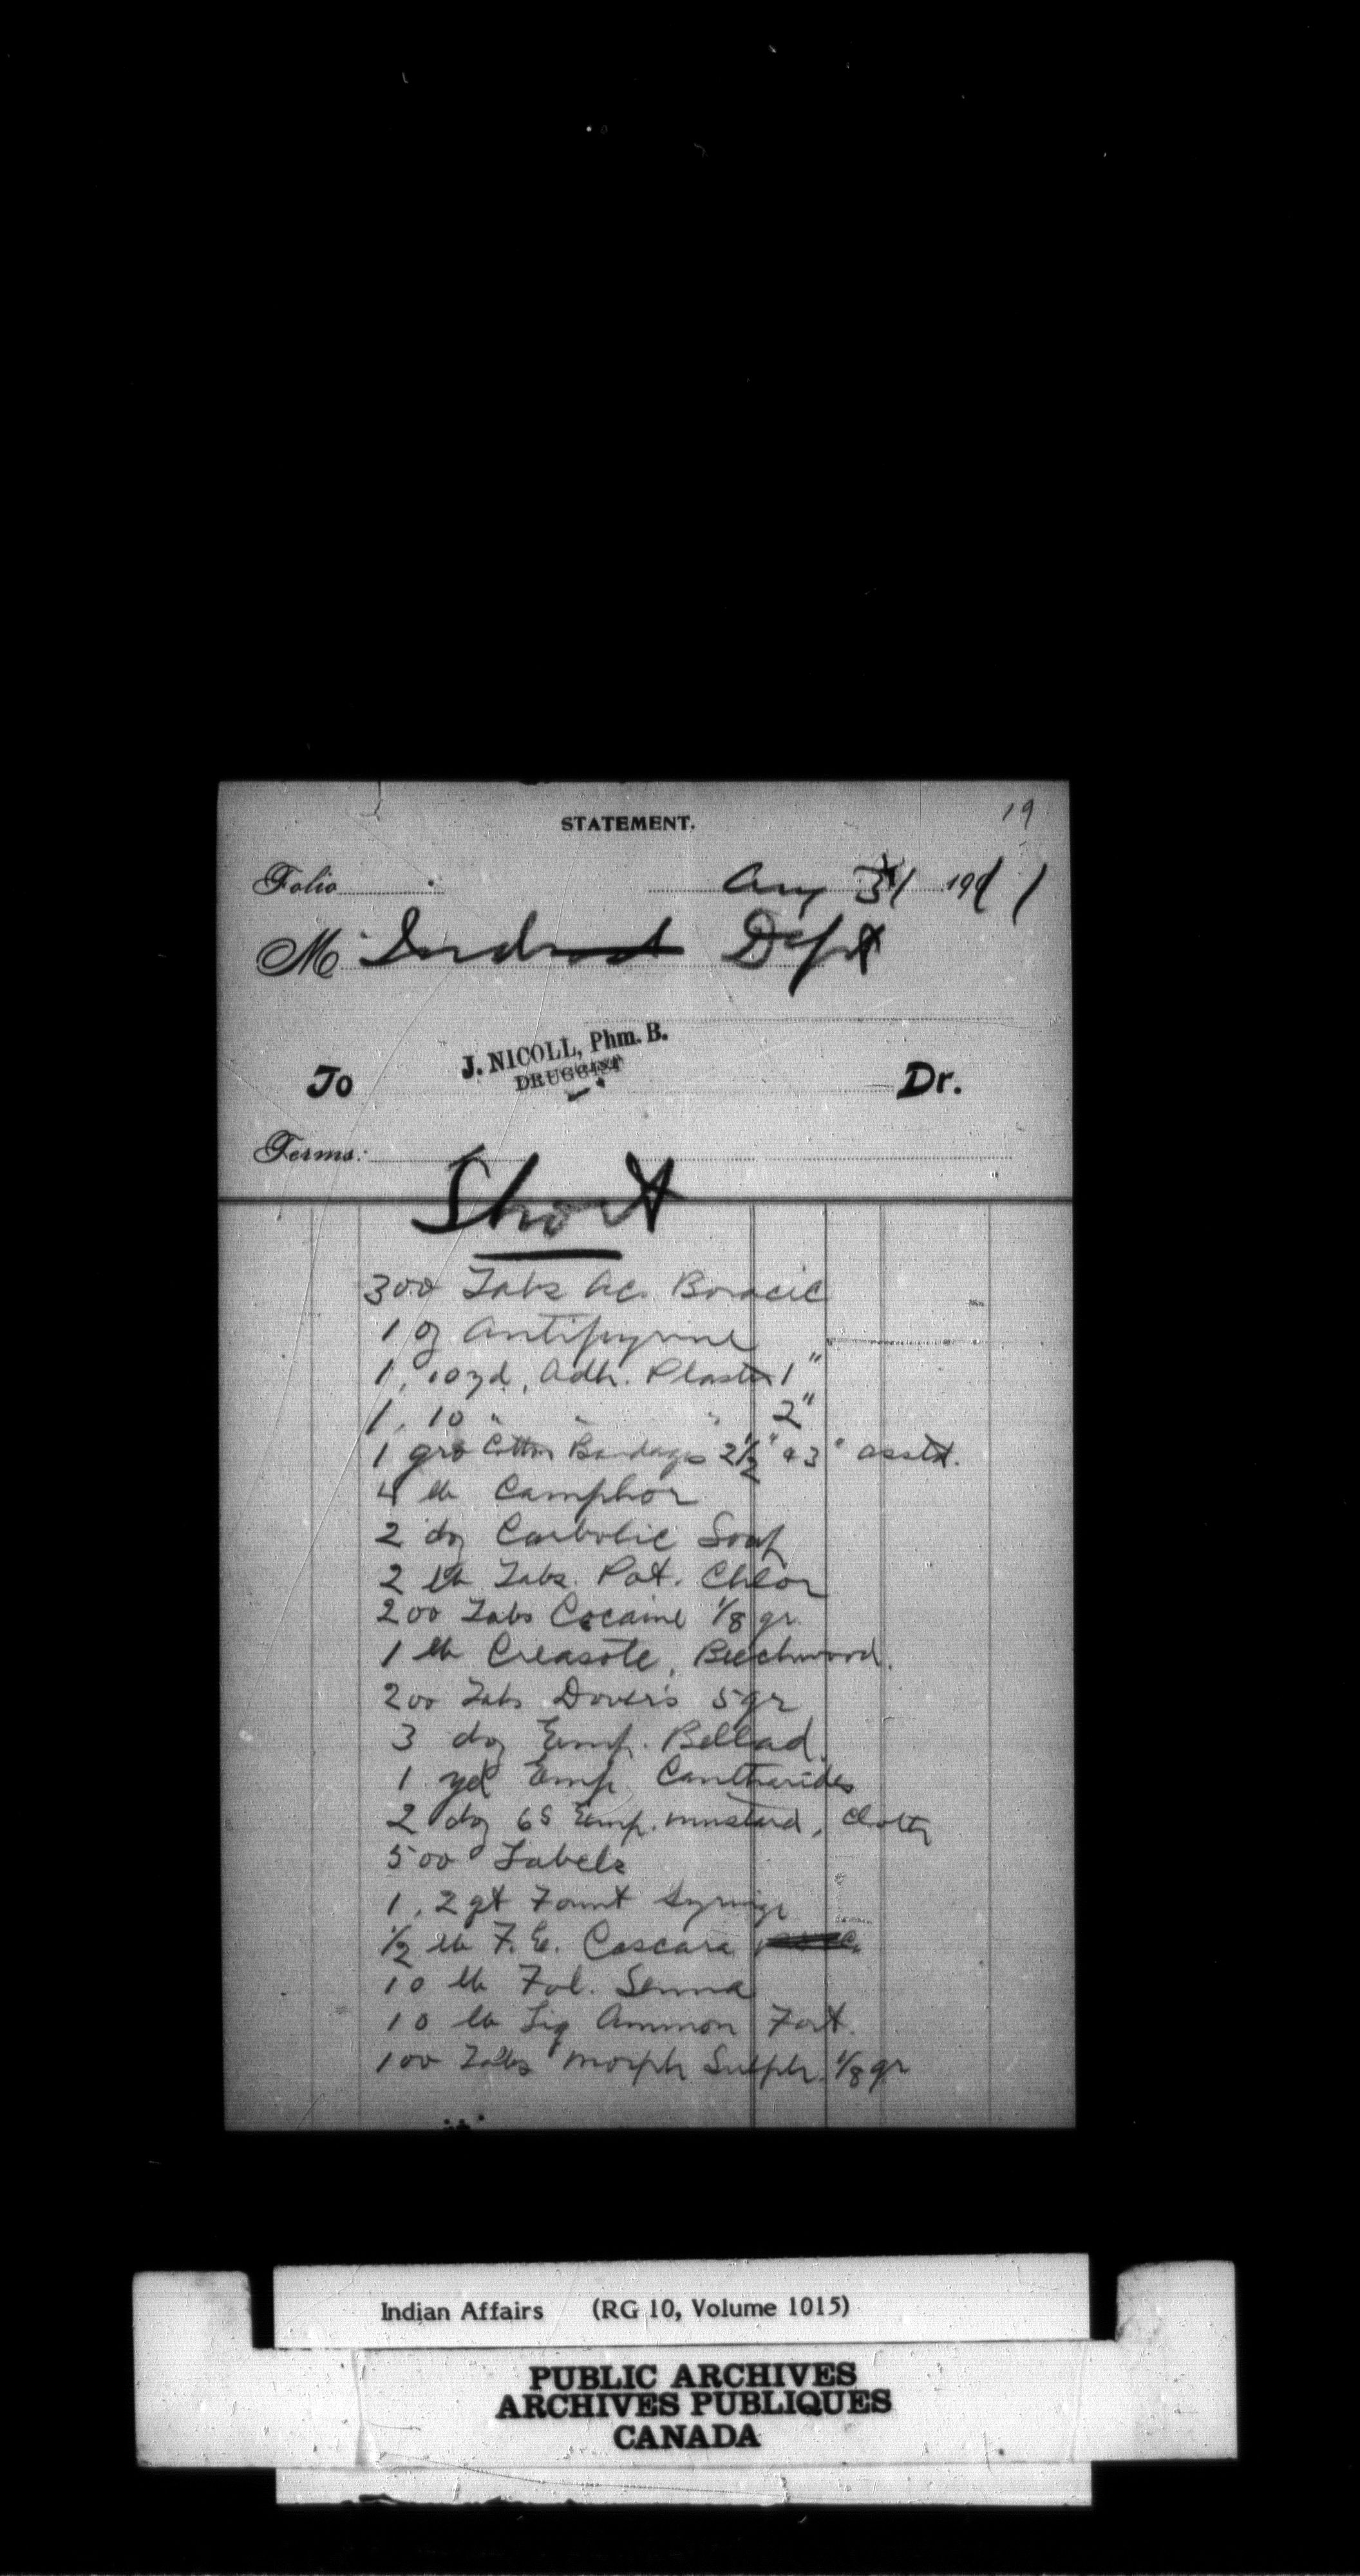 19
STATEMENT.
Folio
Aug 31 1911
M Dept
J. NICOLL, Phm. B.
DRUGGIST
To Dr.
Terms:
Short
300 Tabs Ac. Boracic
1 oz Antipyrine
1, 10 yd, Adh. Plaster 1"
1, 10 " " " 2"
1 gro Cotton Bandages 2 1/2" & 3" asstd.
4 lb Camphor
2 doz Carbolic Soap
2 lb Tabs. Pot. Chlor
200 Tabs Cocaine 1/8 gr.
1 lb Creasote, Beechwood.
200 Tabs Dover's 5 gr
3 doz Emp. Bellad.
1 yd Emp. Cantharides
2 doz 6s Emp. Mustard, Cloth
500 Labels
1, 2 qt Fount Syringe
1/2 lb F. E. Cascara
10 lb Fol. Senna
10 lb Liq Ammon Fort.
100 Tabs Morph Sulph. 1/8 gr
Indian Affairs (RG 10, Volume 1015)
PUBLIC ARCHIVES
ARCHIVES PUBLIQUES
CANADA